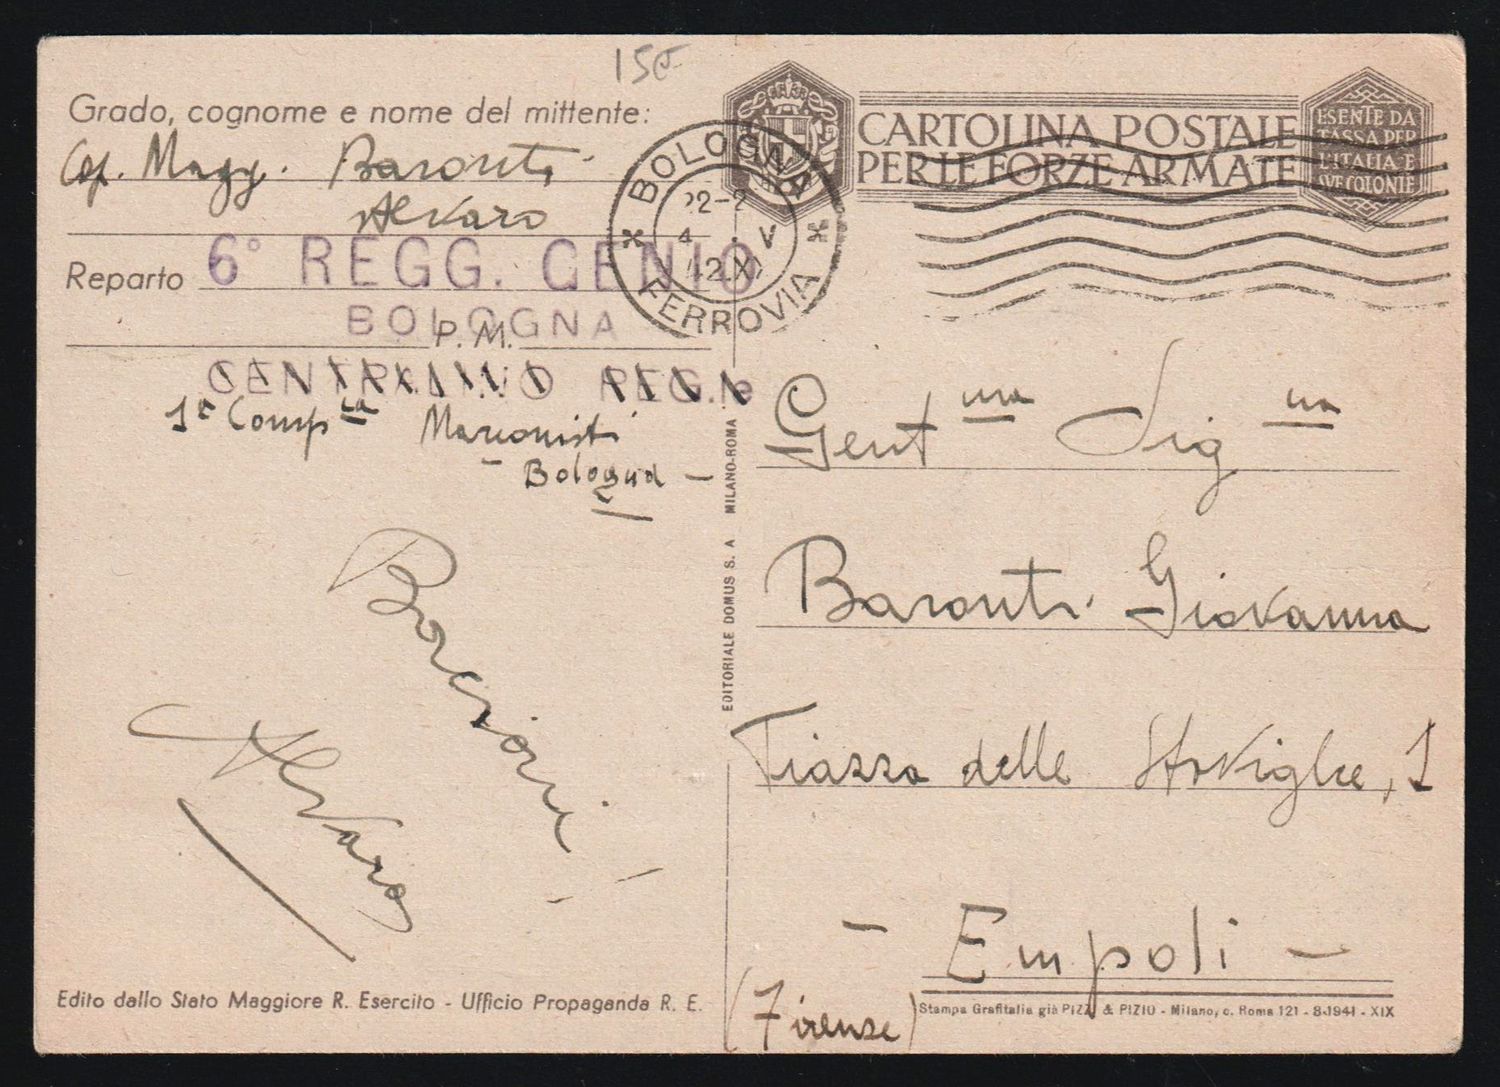 15
Grado, cognome e nome del mittente:
Cap. Magg. Baronti
Alvaro
Reparto 6° REGG. GENIO
BOLOGNA
P. M.
1ª Compia Marconisti
- Bologna -
Baronti
Alvaro
Edito dallo Stato Maggiore R. Esercito - Ufficio Propaganda R. E.
EDITORIALE DOMUS S. A MILANO-ROMA
BOLOGNA
22-2
4 . V
42.X
FERROVIA
CARTOLINA POSTALE
PER LE FORZE ARMATE
ESENTE DA
TASSA PER
L'ITALIA E
SVE COLONIE
Gent ma Sig na
Baronti Giovanna
Piazza delle Stoviglie, 1
- Empoli -
(Firenze)
Stampa Grafitalia già PIZZI & PIZIO - Milano, c. Roma 121 - 8-1941 - XIX